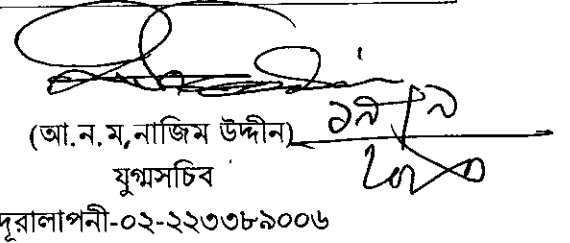 (আ.ন.ম.নাজিম উদ্দীন)
যুগ্মসচিব
দূরালাপনী-০২-২২৩৩৮৯০০৬